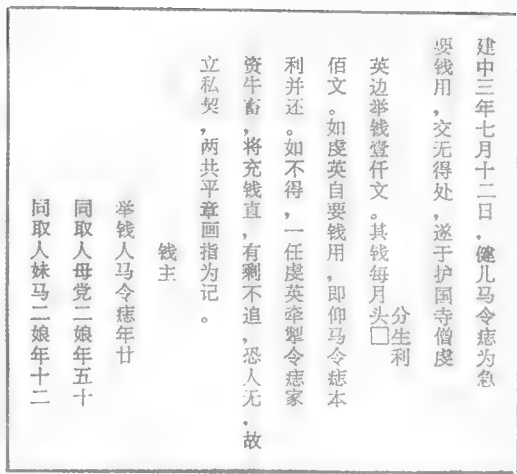 建中三年七月十二日，健儿马令痣为急
要钱用，交无得处，遂于护国寺僧虔
英边举钱壹仟文。其钱每月头分生利□
佰文。如虔英自要钱用，即仰马令痣本
利并还。如不得，一任虔英牵掣令痣家
资牛畜，将充钱直，有剩不追，恐人无．故
立私契，两共平章画指为记。
钱主
举钱人马令痣年廿
同取人母党二娘年五十
同取人妹马二娘年十二